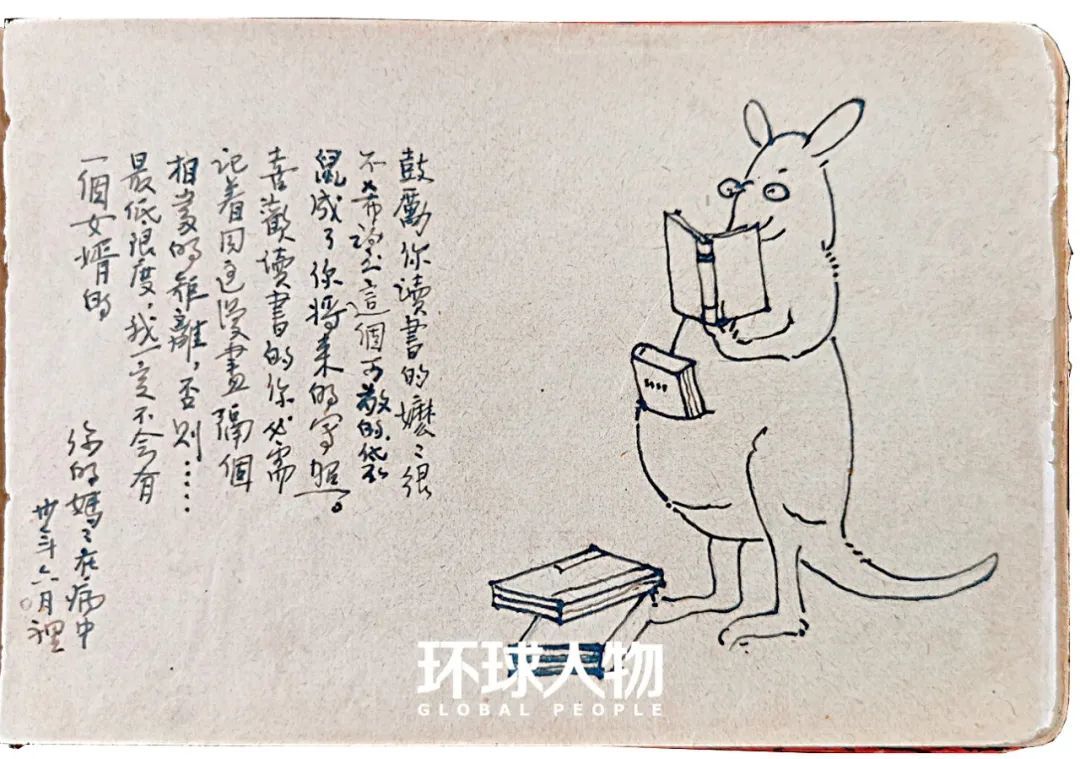 鼓勵你讀書的嬤〻很
不希望這個可敬的袋
鼠成了你將來的寫照。
喜歡讀書的你必需
記着同這漫畫隔個
相當的距離，否則……
最低限度，我一定不會有
一個女婿的
你的媽〻在病中
卅年六月裡
环球人物
GLOBAL PEOPLE